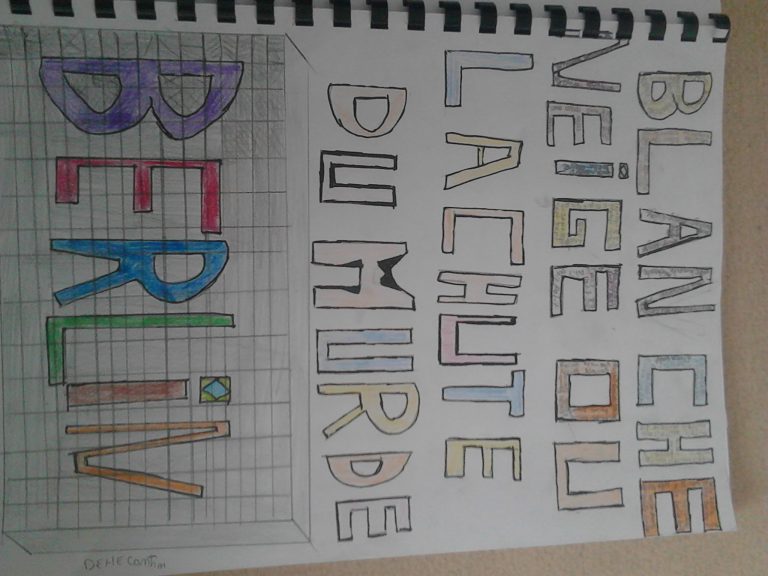 BLANCHE
NEiGE OU
LA CHUTE
DU MUR DE
BERLiN